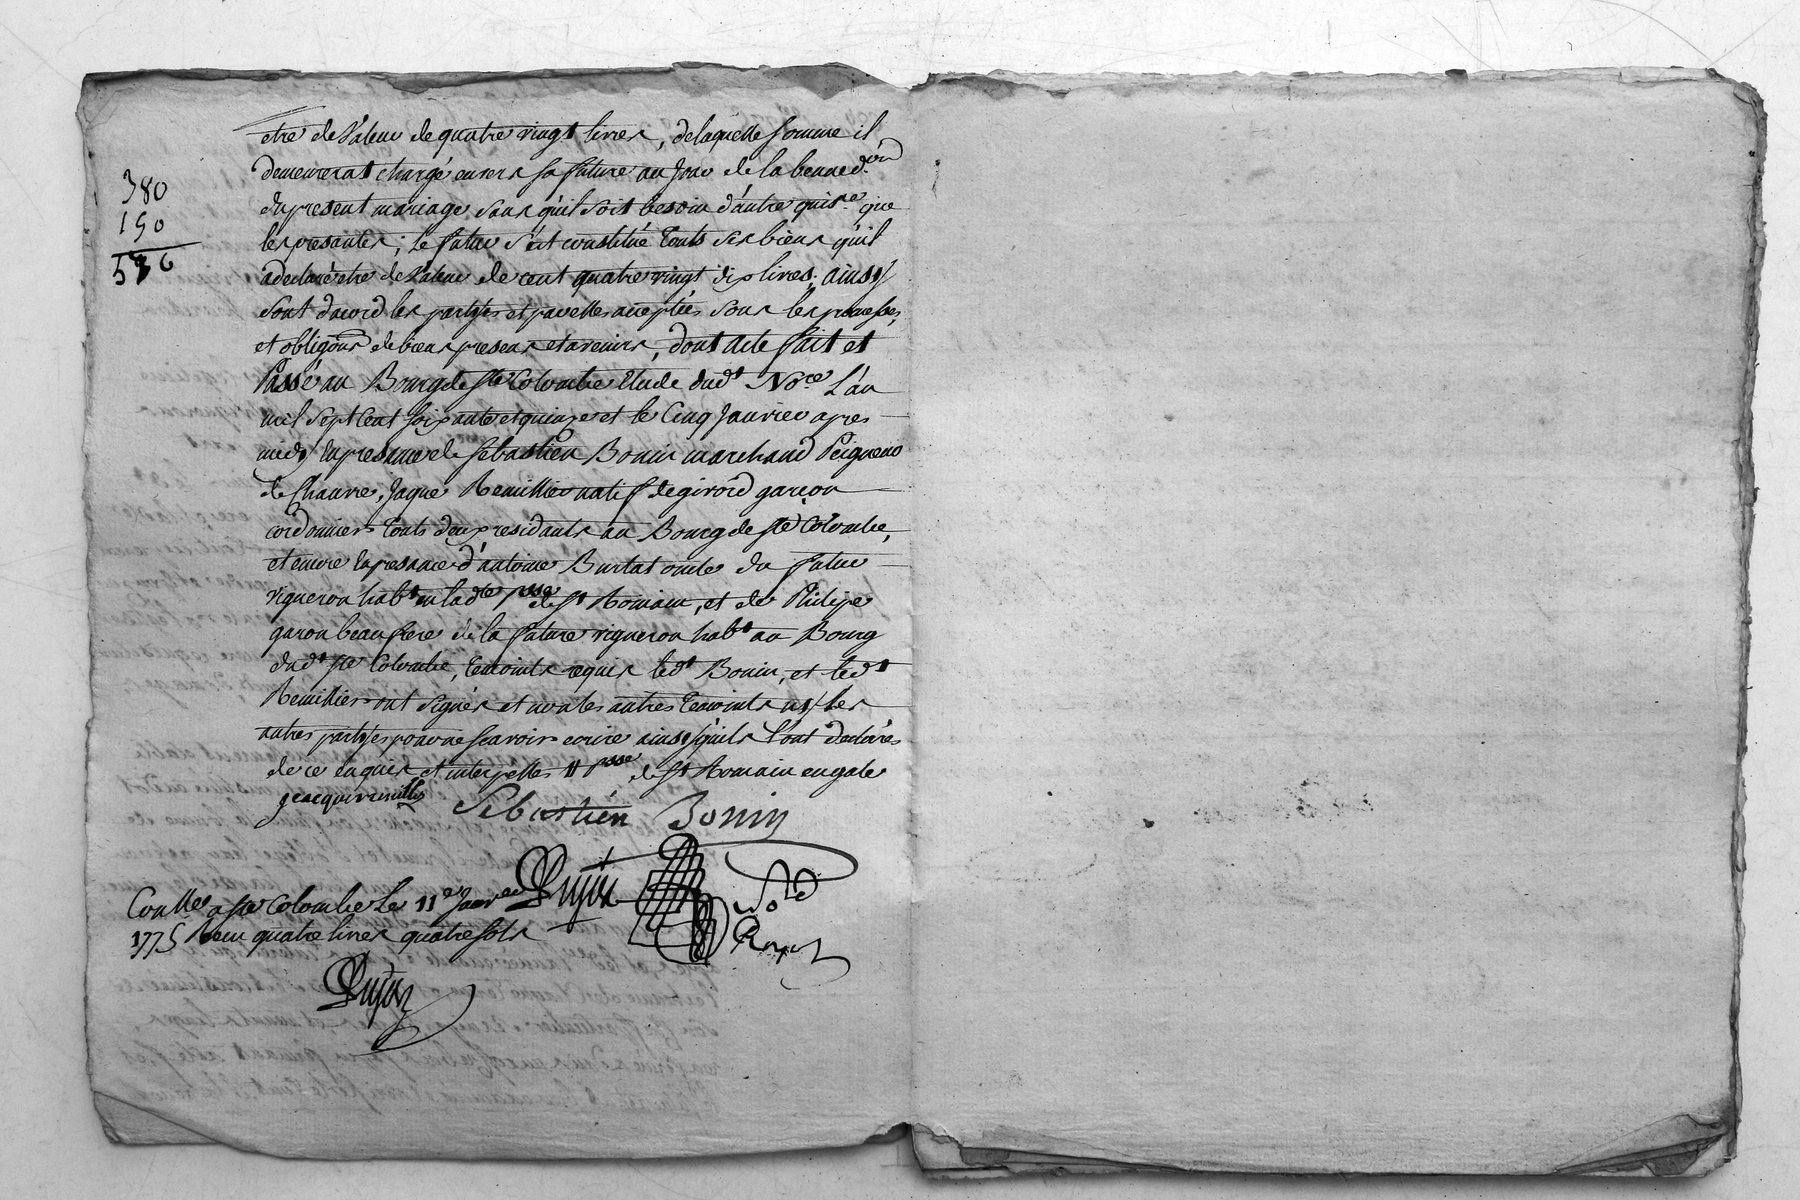 etre de Valeur de quatre vingt livres, de laquelle somme il
demeurerat chargé envers sa future au Jour de la bened.on
du present mariage sans qu'il soit besoin d'autre quis.e que
les presantes; le futur s'est constitué touts ses biens qu'il
a declaré etre de Valeur de cent quatre vingt dix livres; ainsy
sont dacord les partyes et par elles acceptés sous les promesses,
et obligons de biens presens et avenirs, dont acte fait et
Passé au Bourg de ste Colombe Etude dudt No.re L'an
mil sept Cent soixante et quinze et le Cinq Janvier apres
midy En presance de sebastien Bonin marchand Peigneur
de Chanvre, Jaque Remillier natif de girord garçon
cordonnier touts deux residants au Bourg de ste Colombe,
et encore En presance d'antoine Burtat oncle du futur
vigneron habt en ladte psse de st Romain, et de Philipe
garon beaufrere de la future vigneron habt au Bourg
dudt ste Colombe, temoints requis ledt Bonin, et ledt
Remillier ont signés et non les autres temoints ny les
autres partyes pour ne scavoir ecrire ainsy qu'ils l'ont declarés
de ce enquis et interpellés // psse de st Romain en gale
Sebastien Bonin
380
190
576
Dujon
No.re
Royal
Con.lle a ste Colombe Le 11e Janver
1775 Reçu quatre livres quatre sols
Dujon